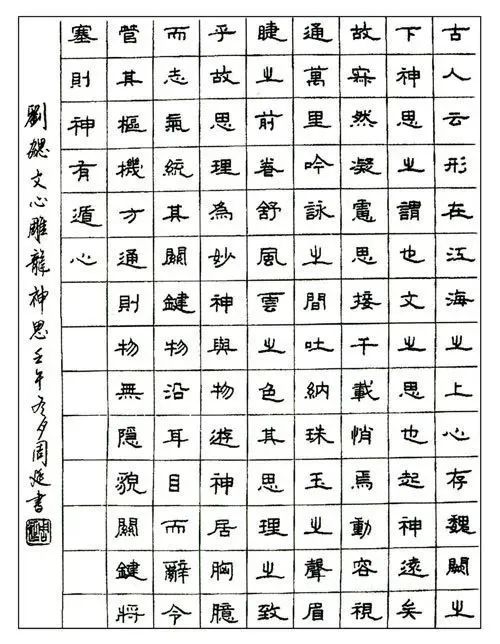 古人云形在江海之上心存魏闕之
下神思之謂也文之思也起神遠矣
故寂然凝慮思接千載悄焉動容視
通萬里吟詠之間吐納珠玉之聲眉
睫之前眷舒風雲之色其思理之致
乎故思理為妙神與物遊神居胸臆
而志氣統其關鍵物沿耳目而辭令
管其樞機方通則物無隱貌關鍵將
塞則神有遁心
劉勰文心雕龍神思壬午冬夕周延書